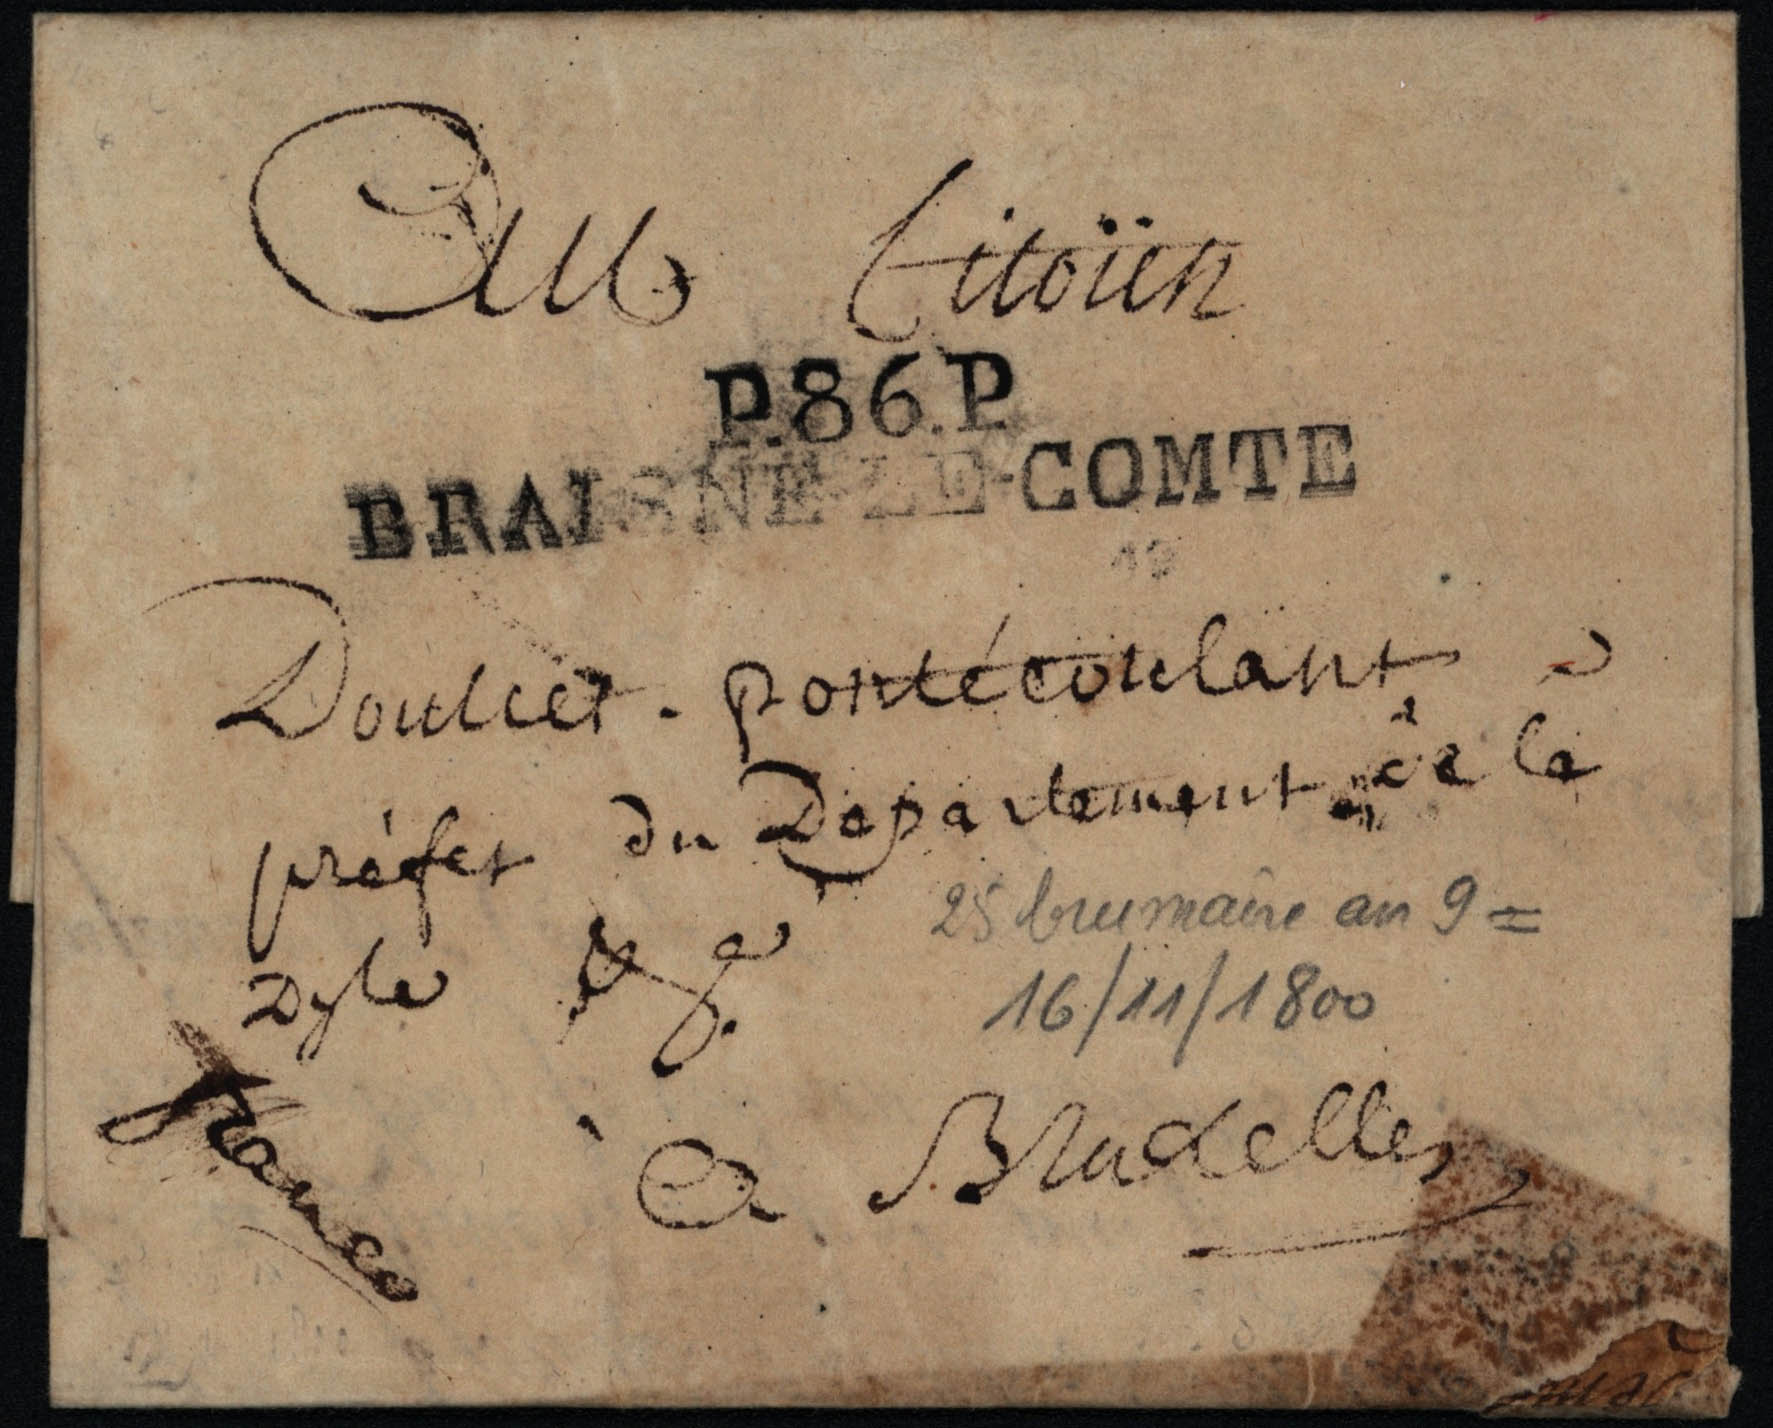 Au Citoïen
P.86.P
BRAISNE-LE-COMTE
Doulcet-pontécoulant
préfet du Departement de la
Dyle &
franco
à Bruxelles
25 brumaire an 9 =
16/11/1800